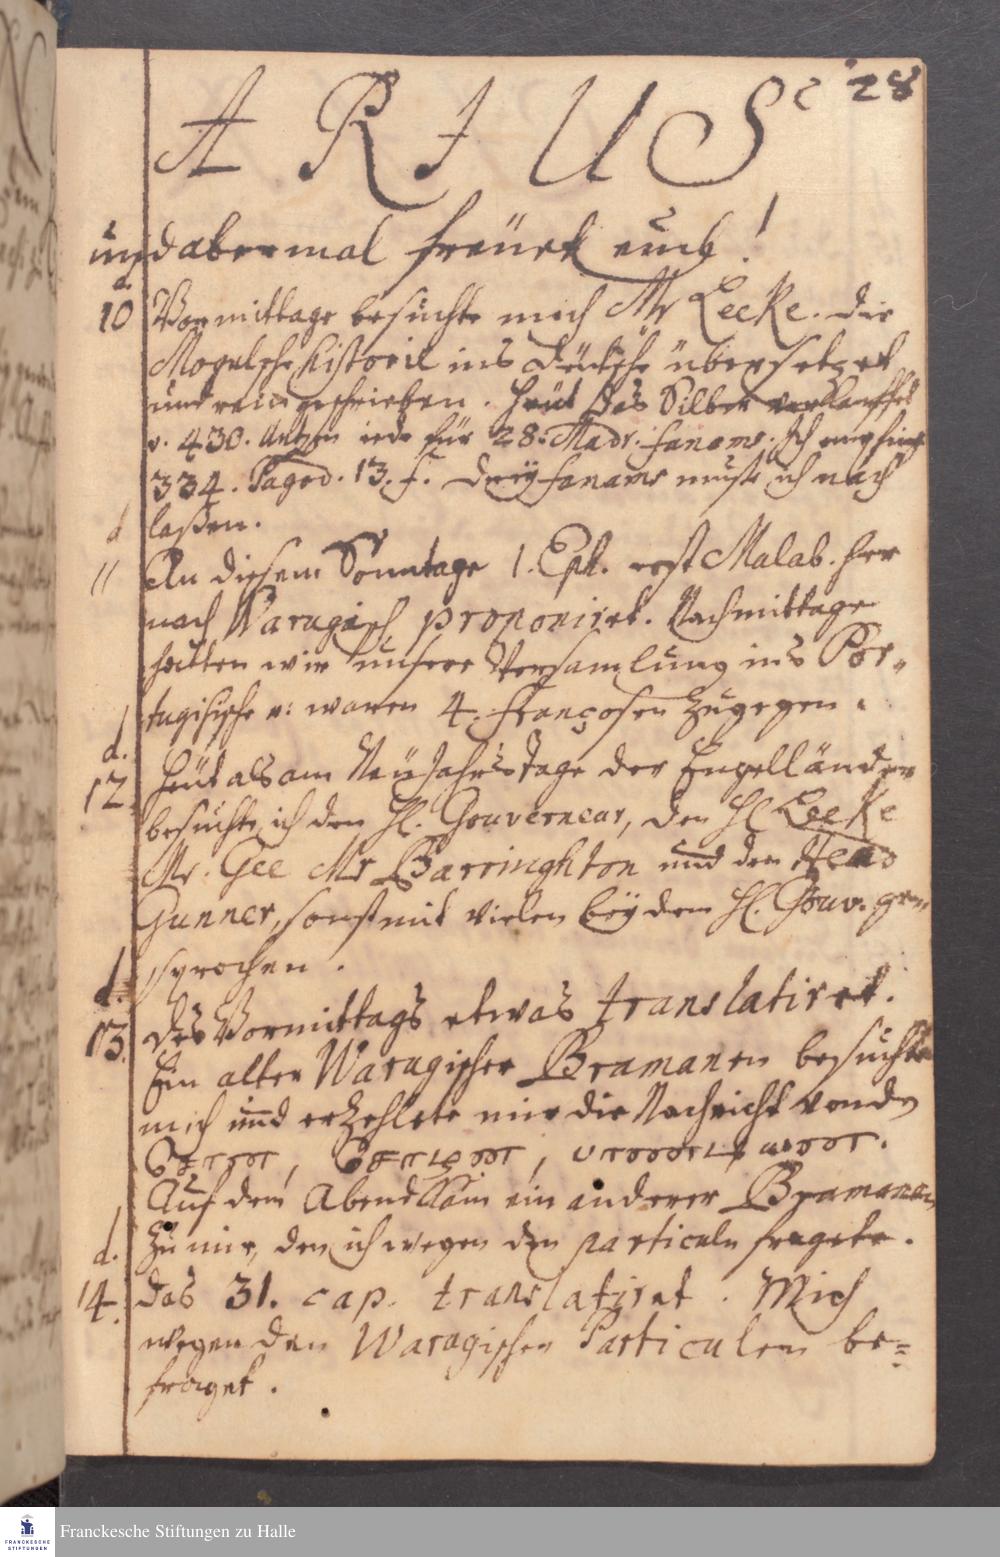 28
A R I U S
und abermal freüet euch!
d. 10 Vormittage besuchte mich Mr Leeke. die
Mogulsche historie ins Deütsche übersetzet
und rein geschrieben. Heüt das Silber verkauffet
v. 430. Untzen iede für 28. Madr. fanams. Ich empfing
334. Pagod. 13. f. Dreÿ fanams muste ich nach
laßen.
d 11 An diesem Sonntage 1. Eph. erst Malab. her
nach Warugisch proponiret. Nachmittage
hatten wir unsere Versamlung ins Por-
tugisische u: waren 4. Françosen zugegen.
d. 12. Heüt als am Neüjahrs Tage der Engelländer
besuchte ich den H. Gouverneur, den H Leeke
Mr. Gee Mr Barringhton und den Head
Gunner, sonst mit vielen beÿ dem H. Gouv. ge-
sprochen.
d. 13. Des Vormittags etwas translatiret.
Ein alter Warugischer Bramanen besuchte
mich und erzehlete mir die Nachricht von dn
Auf den Abend kam ein anderer Bramanen
zu mir, den ich wegen den particuln fragete.
d. 14. Das 31. cap. translatiret. Mich
wegen den Warugischen Particulen be=
fraget.
Franckesche Stiftungen zu Halle
FRANCKESCHE
STIFTUNGEN